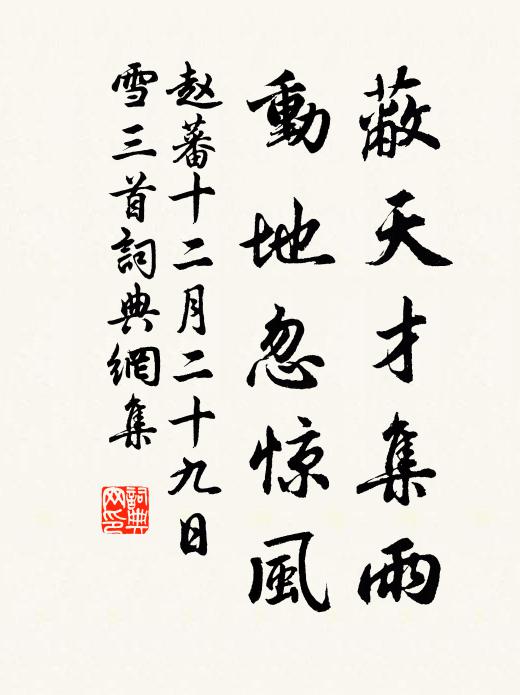 蔽天才集雨
動地忽惊風
赵蕃十二月二十九日
雪三首詞典網集
詞典
网印